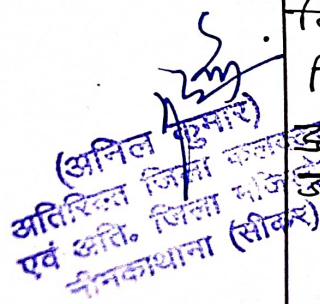 (अनिल कुमार)
अतिरिक्त जिला कलक्टर
एवं अति. जिला मजिस्ट्रेट
नीमकाथाना (सीकर)